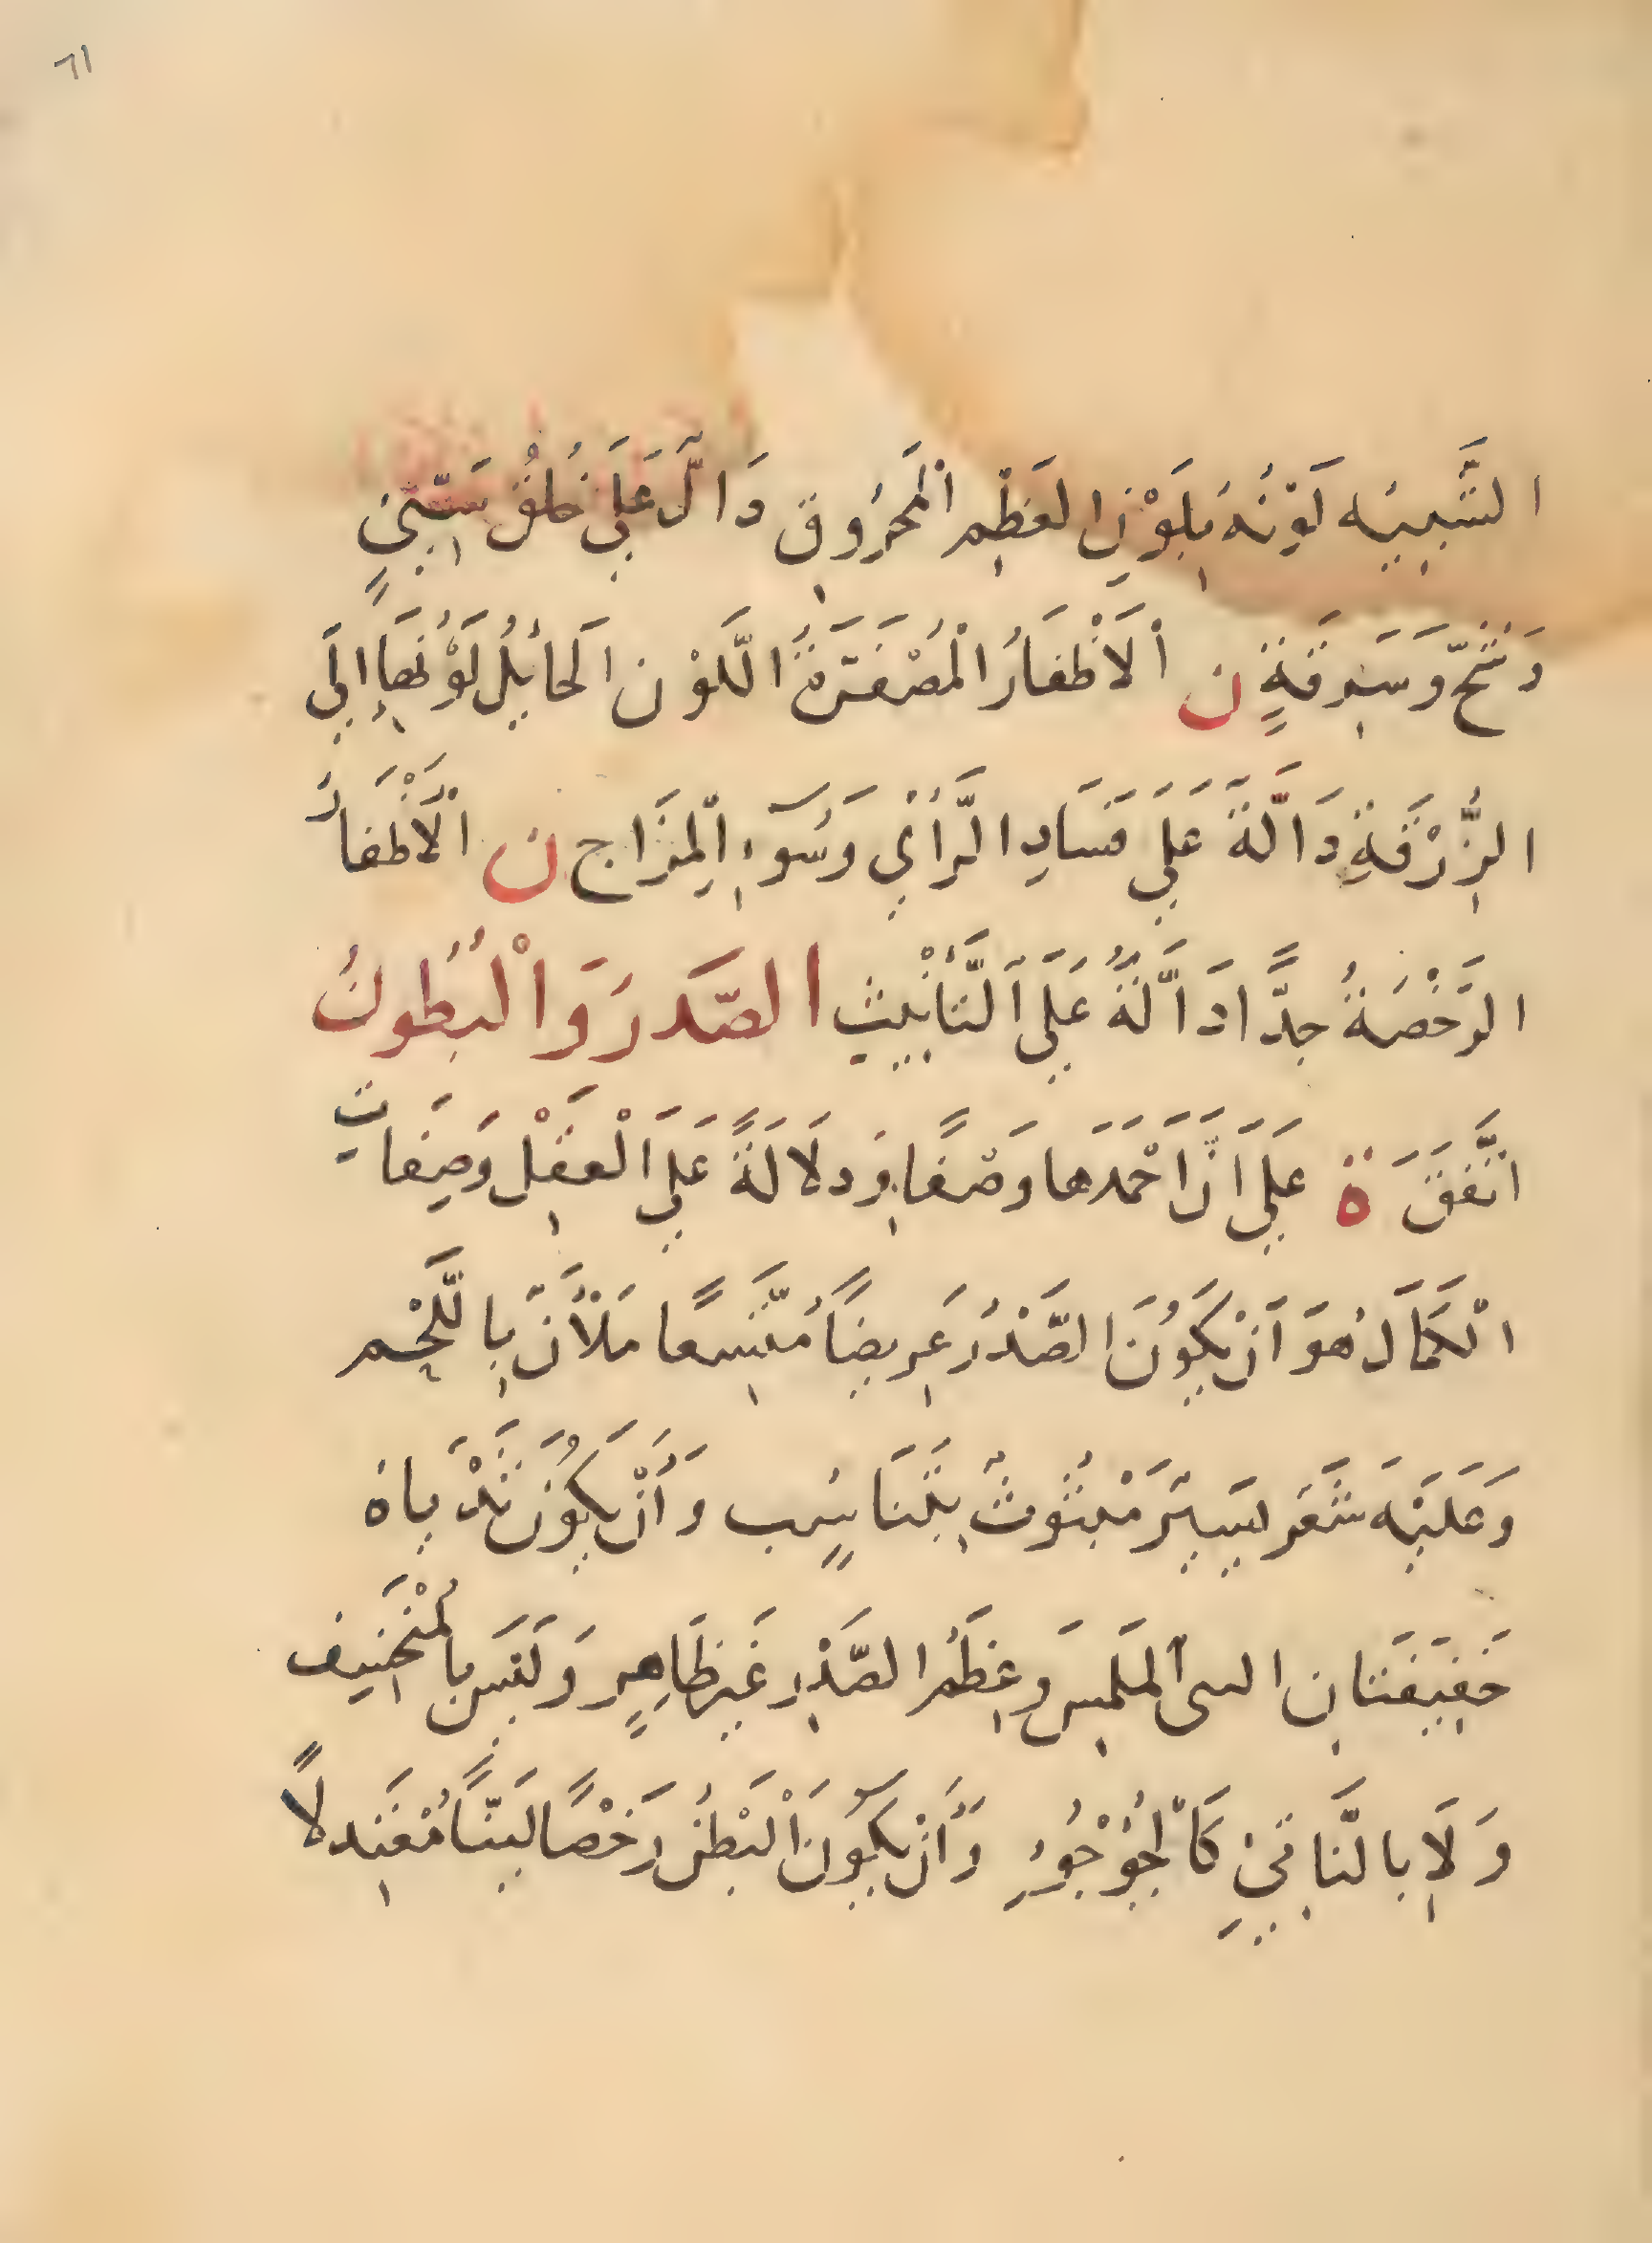 ٦١
الشَّبِيْه لَوْنُهُ بِلَوْنِ العَظْمِ الْمَحْرُوقِ دَالّ عَلَى خُلُقٍ سَيِّئٍ
وَشُحّ وَسَرِقَةٍ ن الْأَظْفَارُ الْمُصْفَرَّةُ اللَّوْنِ الحَائِلُ لَوْنُهَا إِلَى
الزُّرْقَةِ دَالَّةٌ عَلَى فَسَادِ الرَّأْيِ وَسُوءِ الْمِزَاج ن الْأَظْفَارُ
الرَّخْصَةُ جِدًّا دَالَّةٌ عَلَى التَّأْنِيثِ الصَّدرَ وَالْبُطُونُ
اتَّفَقَ ة عَلَى انَّ احْمَدَهَا وَصْفًا وَدلَالَةً عَلَى الْعقْلِ وَصِفَاتِ
الْكَمَالَ هُوَ اَنْ يَكُونَ الصَّدْرُ عَرِيضًا مُتَّسِعًا مَلْآنَ بِاللَّحْمِ
وَعَلَيْهِ شَعَر يَسِيْر مَبْثُوثٌ بِتَنَاسُبٍ وَأَنْ يَكُونَ ثَدْيَاهُ
خَفِيفَتَانِ الملْمسِ وَعِظَمُ الصَّدْرِ غَيْر ظَاهِرٍ وَلَيْسَ بِالْمُنْخَنِيف
وَلَا بِالنَّاتِئِ كَالْجُؤْجُؤِ وَأَنْ يَكُونَ الْبَطْنُ رَخْصًا لَيِّنًا مُعْتَدِلًا